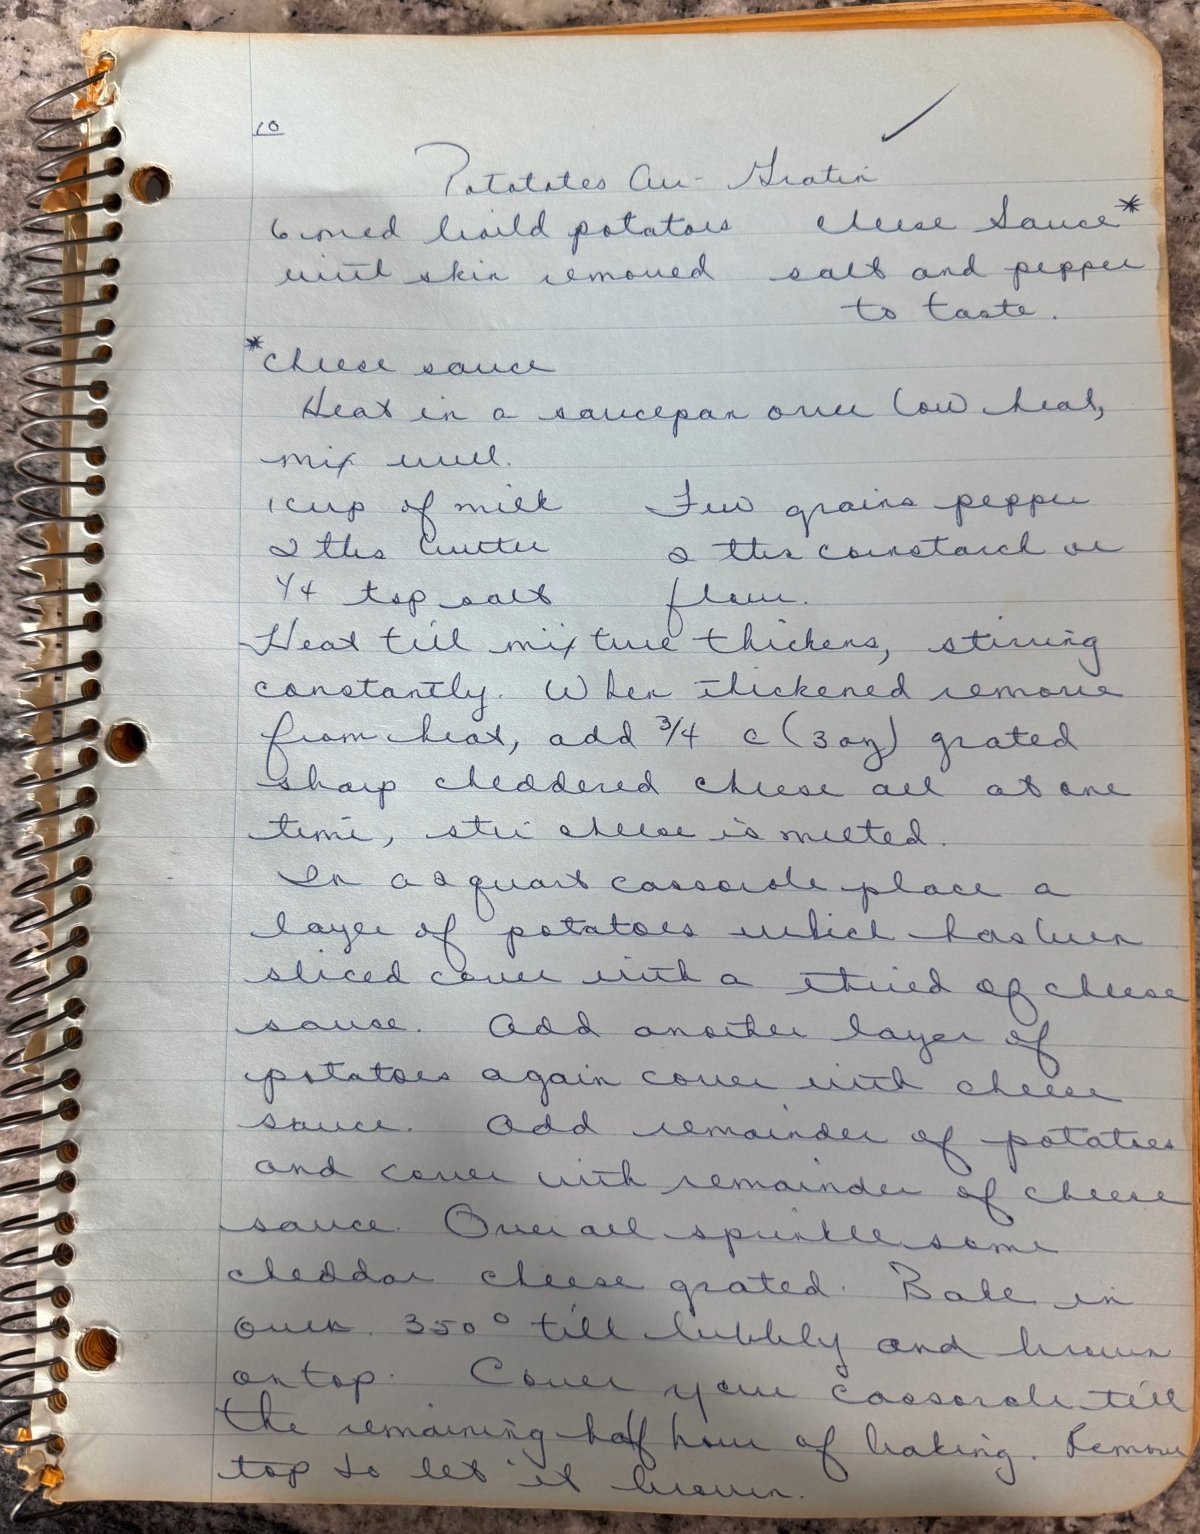 10
Potatotes Au-Gratin
6 med boild potatoes cheese Sauce*
with skin removed salt and pepper
to taste.
*cheese sauce
Heat in a saucepan over low heat,
mix well.
1 cup of milk Few grains pepper
2 tbs butter 2 tbs cornstarch or
1/4 tsp salt flour.
Heat till mixture thickens, stirring
constantly. When thickened remove
from heat, add 3/4 c (3 oz) grated
sharp cheddered cheese all at one
time, stir cheese is melted.
In a 2 quart casserole place a
layer of potatoes which has been
sliced cover with a third of cheese
sauce. Add another layer of
potatoes again cover with cheese
sauce. Add remainder of potatoes
and cover with remainder of cheese
sauce. Over all sprinkle some
cheddar cheese grated. Bake in
oven. 350° till bubbly and brown
on top. Cover your casserole till
the remaining half hour of baking. Remove
top to let it brown.